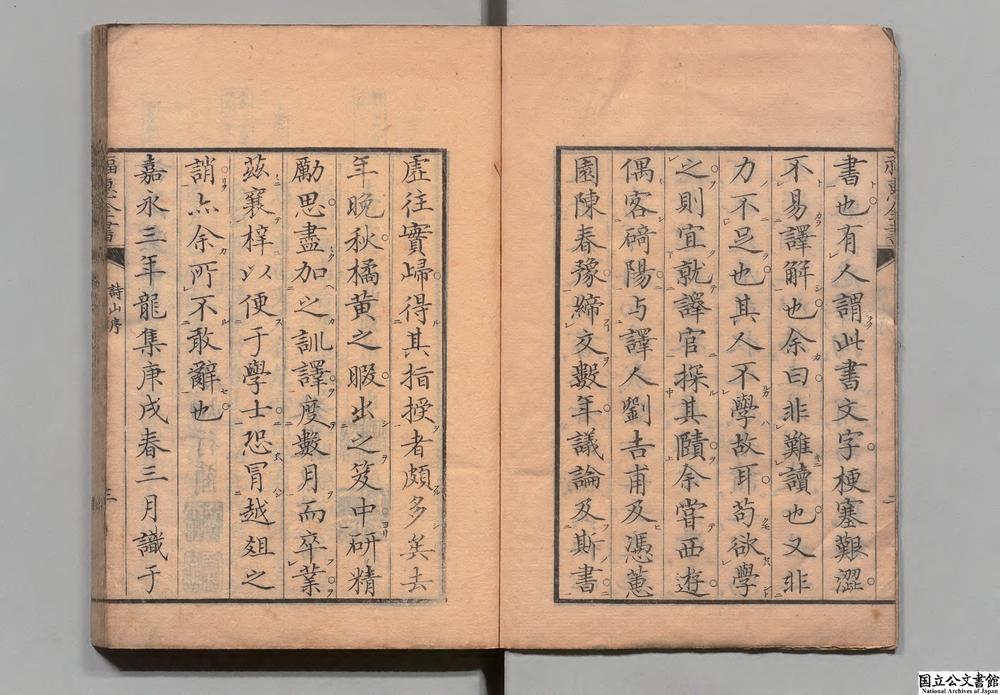 福惠全書
二
書也有人謂此書文字梗塞艱澀
不易譯解也余曰非難讀也又非
力不足也其人不學故耳苟欲學
之則宜就譯官探其賾余嘗西遊
偶客碕陽与譯人劉吉甫及馮蕙
園陳春豫締文數年議論及斯書
虛往實歸得其指授者頗多矣去
年晩秋橘黄之暇出之笈中研精
勵思盡加之訓譯度數月而卒業
茲襄梓以便于學士恐冒越爼之
誚亦余所不敢辭也
嘉永三年龍集庚戌春三月識于
福惠全書
詩山序
三
国立公文書館
National Archives of Japan